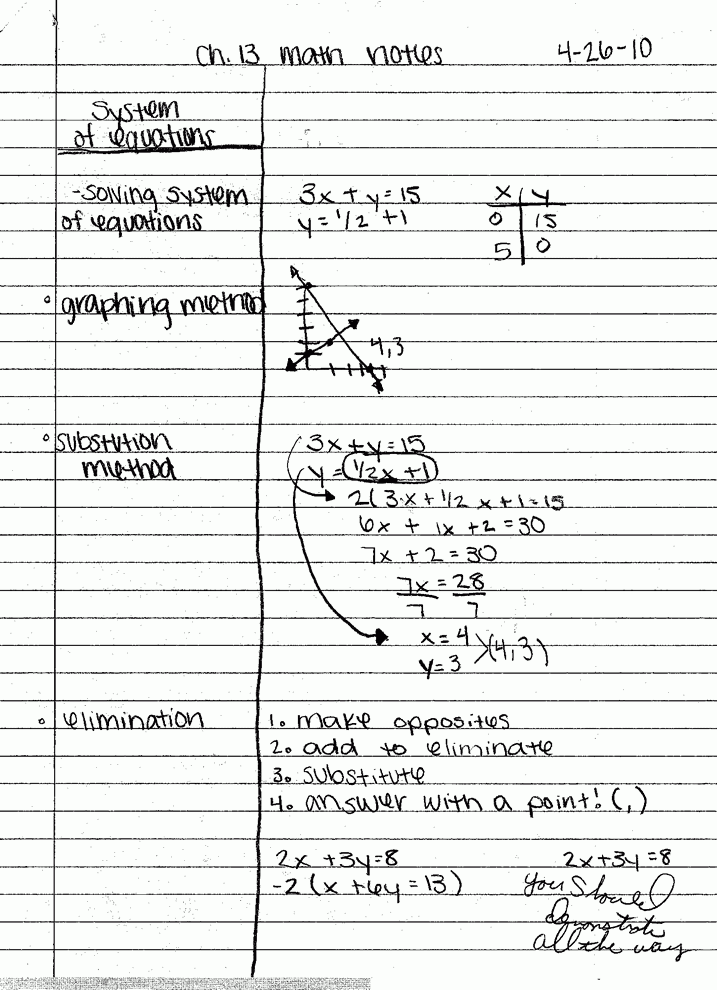 Ch. 13 math notes 4-26-10
System
of equations
-solving system
of equations
3x + y = 15
y = 1/2 + 1
x y
0 15
5 0
• graphing method
4,3
• substution
method
3x + y = 15
y = 1/2x + 1
2(3·x + 1/2 x + 1 = 15
6x + 1x + 2 = 30
7x + 2 = 30
7x = 28
7 7
x = 4
y = 3 >(4,3)
• elimination
1. make opposites
2. add to eliminate
3. substitute
4. answer with a point! (,)
2x + 3y = 8
-2(x + 6y = 13)
2x + 3y = 8
you should
demonstrate
all the way